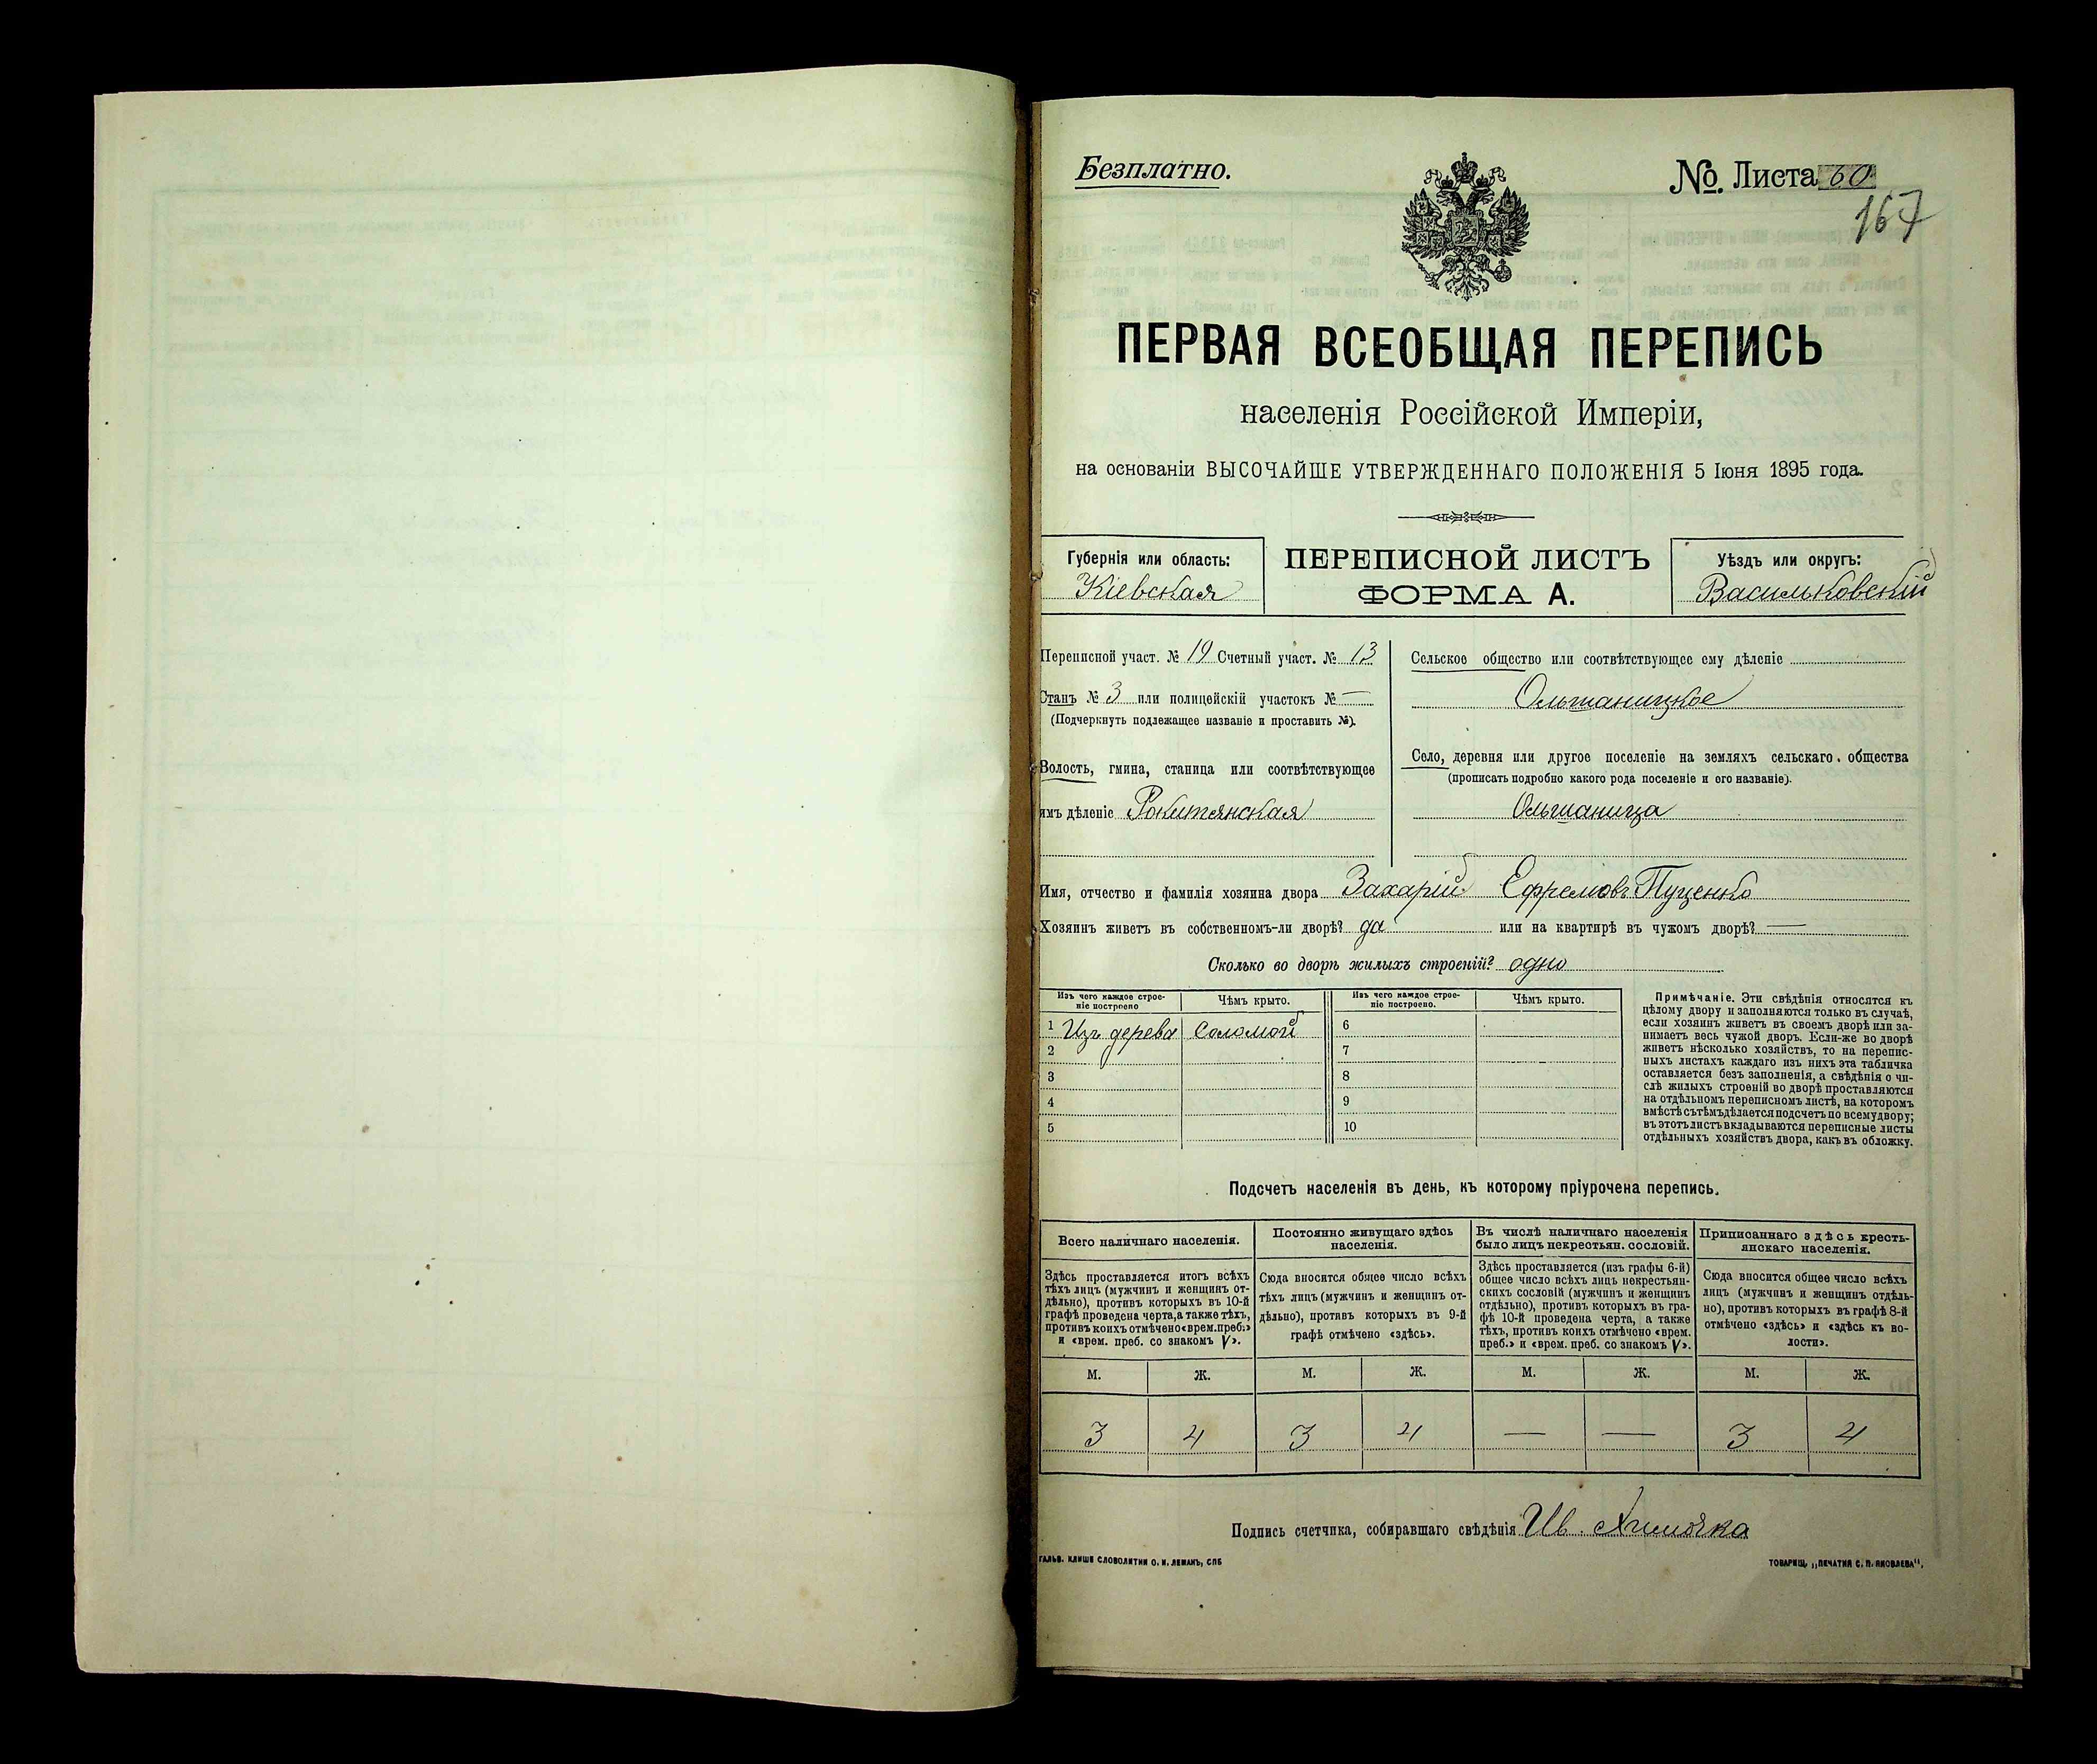 Безплатно.
№. Листа 60
167
ПЕРВАЯ ВСЕОБЩАЯ ПЕРЕПИСЬ
населенія Россійской Имперіи,
на основаніи ВЫСОЧАЙШЕ УТВЕРЖДЕННАГО ПОЛОЖЕНІЯ 5 Іюня 1895 года.
Губернія или область:
Кіевская
ПЕРЕПИСНОЙ ЛИСТЪ
ФОРМА А.
Уѣздъ или округъ:
Васильковскій
Переписной участ. № 19 Счетный участ. № 13
Станъ № 3 или полицейскій участокъ № —
(Подчеркнуть подлежащее названіе и проставить №).
Волость, гмина, станица или соотвѣтствующее
имъ дѣленіе Рокитянская
Сельское общество или соотвѣтствующее ему дѣленіе
Ольшаницкое
Село, деревня или другое поселеніе на земляхъ сельскаго общества
(прописать подробно какого рода поселеніе и его названіе).
Ольшаница
Имя, отчество и фамилія хозяина двора Захарій Ефремовъ Пуценко
Хозяинъ живетъ въ собственномъ-ли дворѣ? да или на квартирѣ въ чужомъ дворѣ? —
Сколько во дворѣ жилыхъ строеній? одно
Изъ чего каждое строе-
ніе построено
Чѣмъ крыто.
Изъ чего каждое строе-
ніе построено.
Чѣмъ крыто.
1 Изъ дерева Соломой 6
2 7
3 8
4 9
5 10
Примѣчаніе. Эти свѣдѣнія относятся къ
цѣлому двору и заполняются только въ случаѣ,
если хозяинъ живетъ въ своемъ дворѣ или за-
нимаетъ весь чужой дворъ. Если-же во дворѣ
живетъ нѣсколько хозяйствъ, то на перепис-
ныхъ листахъ каждаго изъ нихъ эта табличка
оставляется безъ заполненія, а свѣдѣнія о чи-
слѣ жилыхъ строеній во дворѣ проставляются
на отдѣльномъ переписномъ листѣ, на которомъ
вмѣстѣ съ тѣмъ дѣлается подсчетъ по всему двору;
въ этотъ листъ вкладываются переписные листы
отдѣльныхъ хозяйствъ двора, какъ въ обложку.
Подсчетъ населенія въ день, къ которому пріурочена перепись.
Всего наличнаго населенія.
Постоянно живущаго здѣсь
населенія.
Въ числѣ наличнаго населенія
было лицъ некрестьян. сословій.
Приписаннаго здѣсь кресть-
янскаго населенія.
Здѣсь проставляется итогъ всѣхъ
тѣхъ лицъ (мужчинъ и женщинъ от-
дѣльно), противъ которыхъ въ 10-й
графѣ проведена черта, а также тѣхъ,
противъ коихъ отмѣчено «врем. преб.»
и «врем. преб. со знакомъ V».
Сюда вносится общее число всѣхъ
тѣхъ лицъ (мужчинъ и женщинъ от-
дѣльно), противъ которыхъ въ 9-й
графѣ отмѣчено «здѣсь».
Здѣсь проставляется (изъ графы 6-й)
общее число всѣхъ лицъ некрестьян-
скихъ сословій (мужчинъ и женщинъ
отдѣльно), противъ которыхъ въ гра-
фѣ 10-й проведена черта, а также
тѣхъ, противъ коихъ отмѣчено «врем.
преб.» и «врем. преб. со знакомъ V».
Сюда вносится общее число всѣхъ
лицъ (мужчинъ и женщинъ отдѣль-
но), противъ которыхъ въ графѣ 8-й
отмѣчено «здѣсь» и «здѣсь къ во-
лости».
М. Ж. М. Ж. М. Ж. М. Ж.
3 4 3 4 — — 3 4
Подпись счетчика, собиравшаго свѣдѣнія Ив.
ГАЛЬВ. КЛИШЕ СЛОВОЛИТНИ О. И. ЛЕМАНЪ, СПБ
ТОВАРИЩ. „ПЕЧАТНЯ С. П. ЯКОВЛЕВА“.